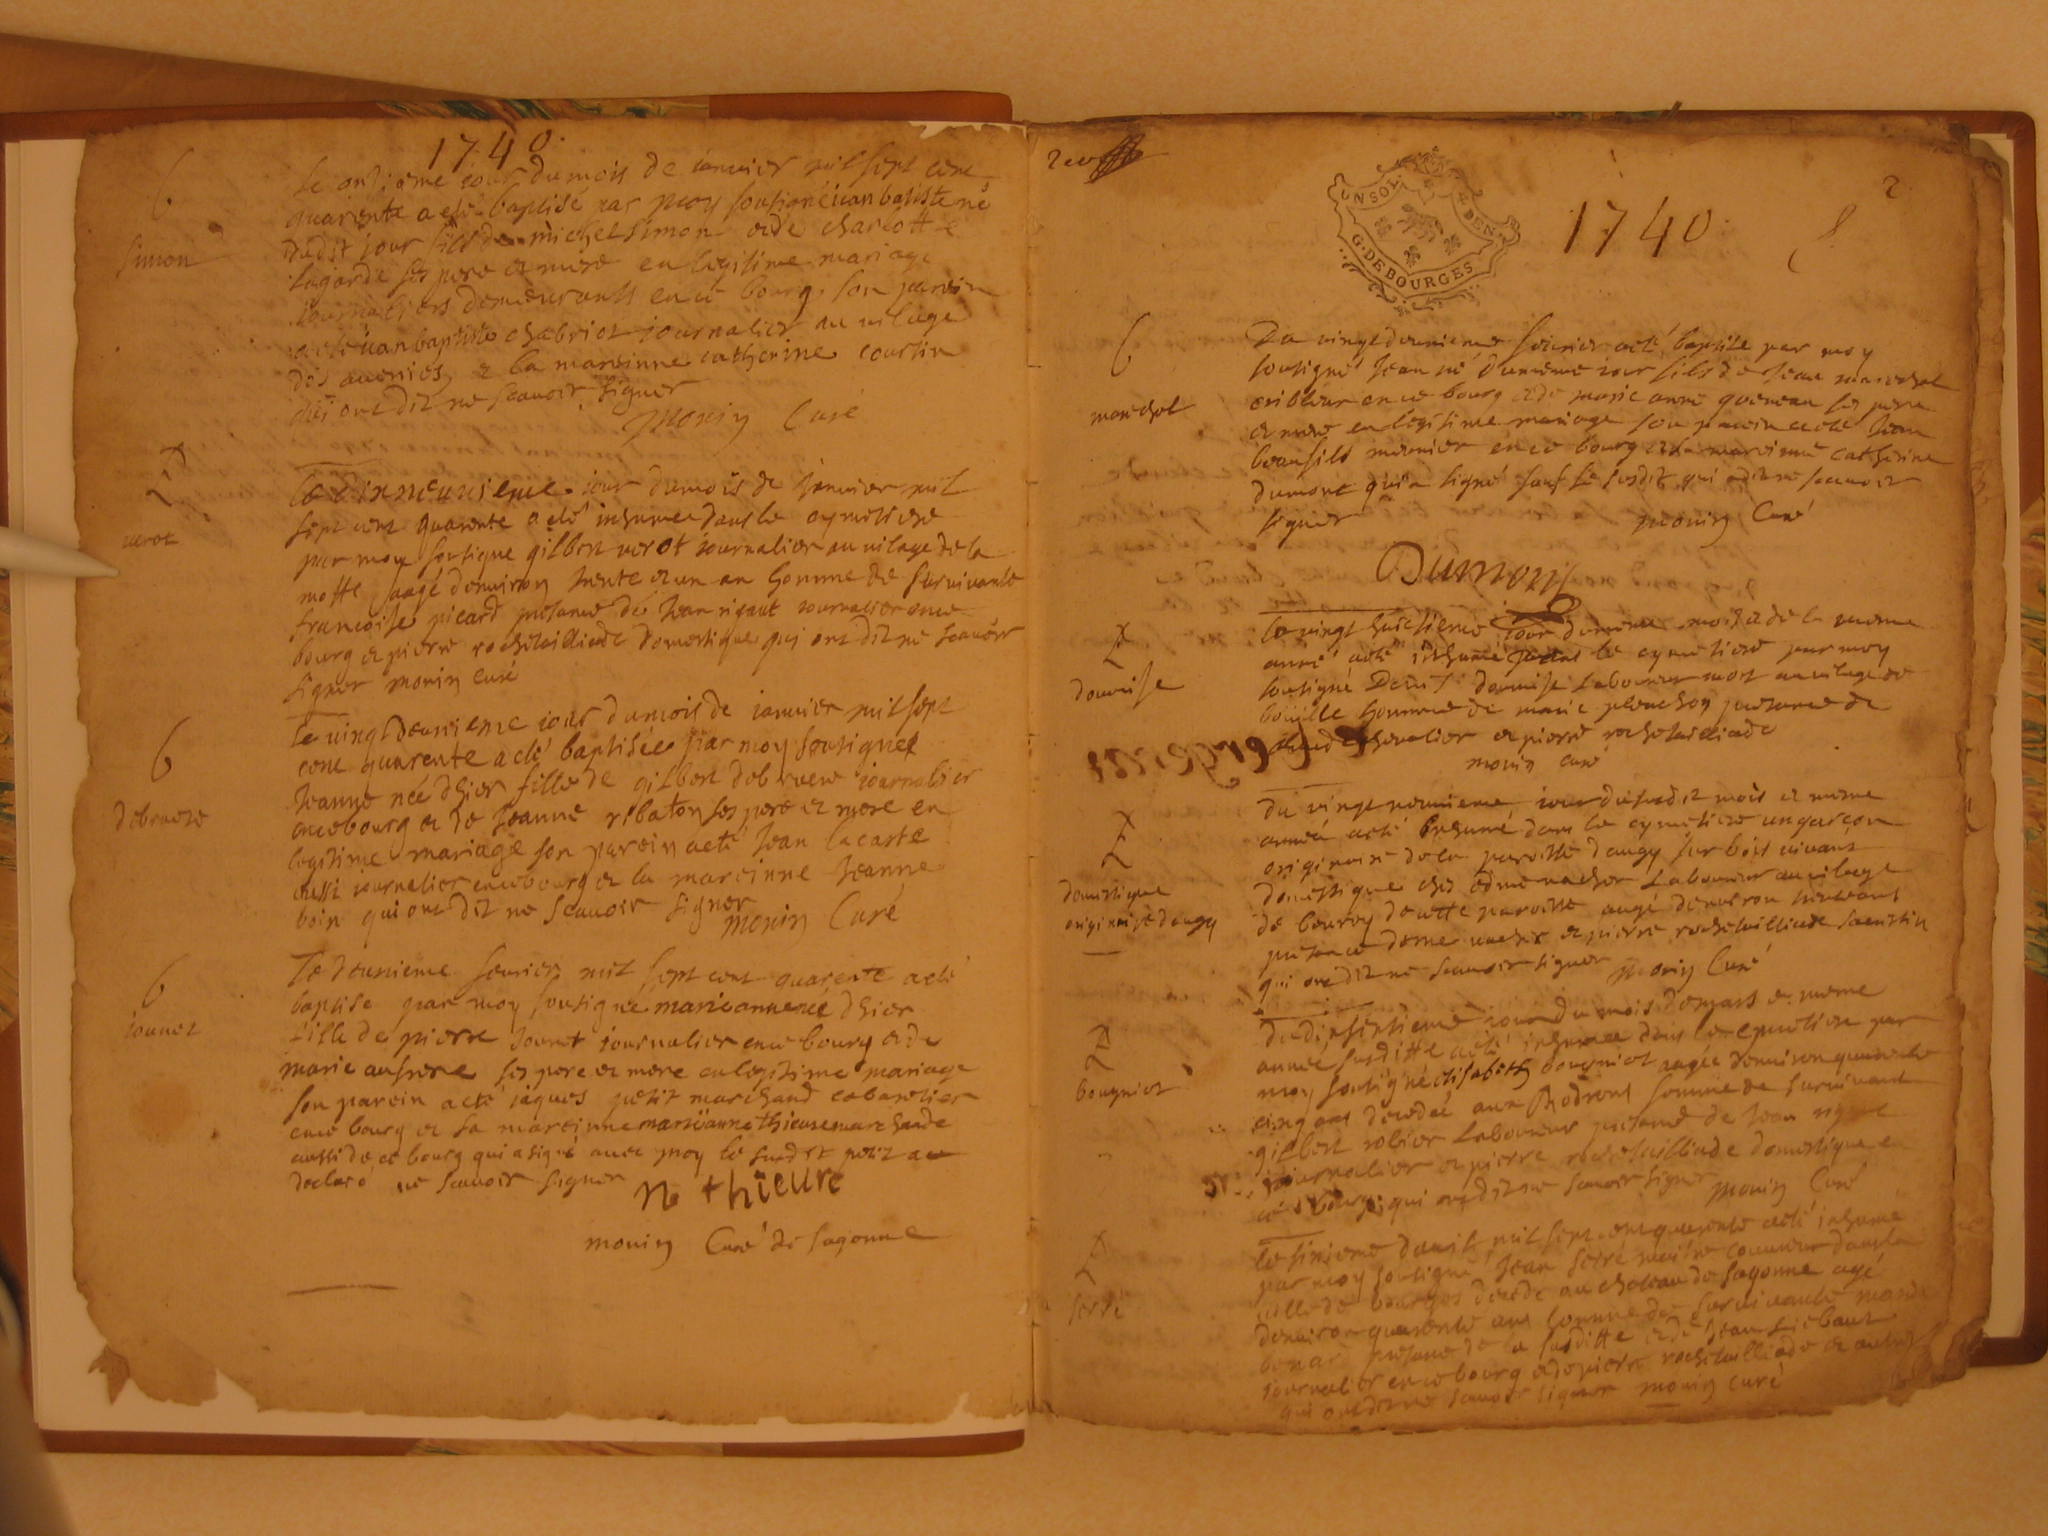 1740.
6
simon
Le onzieme iour du mois de ianvier mil sept cent
quarente a eté baptisé par moy sousigné iean batiste né
dudit iour fils de michel simon et de charlotte
lagarde ses pere et mere en legitime mariage
iournaliers demeurants en ce bourg. son parein
a eté iean baptiste chabriot iournalier au vilage
des avenies, et la mareinne catherine courtin
qui ont dit ne scavoir signer
monin Curé
verot
Le dixneuvieme iour du mois de ianvier mil
sept cent quarente a eté inhumé dans le cymetiere
par moy sousigné gilbert verot iournalier au vilage de la
motte aagé denviron trente et un an homme de survivante
francoise picard presence de iean rigaut iournalier en ce
bourg et pierre rochetailliade domestique qui ont dit ne scavoir
signer monin curé
6
debruere
Le vingt deuxieme iour du mois de ianvier mil sept
cent quarente a eté baptisée par moy sousigné
ieanne née dhier fille de gilbert debruere iournalier
en ce bourg et de ieanne ribaton ses pere et mere en
legitime mariage son parein a eté iean lacaste
aussi iournalier en ce bourg et la mareinne ieanne
boin qui ont dit ne scavoir signer
monin Curé
6
iounet
Le deuxieme fevrier mil sept cent quarente a eté
baptisé par moy sousigné marieanne née dhier
fille de pierre iounet iournalier en ce bourg et de
marie aufrere ses pere et mere en legitime mariage
son parein a eté iaques petit marchand cabaretier
en ce bourg et sa mareinne marieanne thieure marchande
aussi de ce bourg qui a signé avec moy le susdit petit a
declaré ne scavoir signer
m thieure
monin Curé de sagonne
2
GDEBOURGES
1740
6
marechal
Du vingt deuxieme fevrier a eté baptisé par moy
sousigné iean né du meme iour fils de iean marechal
cribleur en ce bourg et de marie anne ses pere
et mere en legitime mariage son parein a eté iean
beaufils meunier en ce bourg et la mareinne catherine
dumont qui a signé sauf le susdit qui a dit ne scavoir
signer monin Curé
Dumont
Le vingt huictieme iour du meme mois et de la meme
année a eté inhumé dans le cymetiere par moy
sousigné Denis laboureur mort au vilage de
homme de marie presence de
chevalier et pierre rochetailliade
monin curé
domestique
originaire daugy
Du vingt neuvieme iour du susdit mois et meme
année a eté inhumé dans le cymetiere un garçon
originaire de la paroisse daugy sur bois vivant
domestique ches edme vacher laboureur au vilage
de de cette paroisse aagé denviron trente ans
presence dedme vacher et pierre rochetailliade sacristin
qui ont dit ne scavoir signer monin Curé
bougniot
Du dixseptieme iour du mois de mars et meme
année susditte a eté inhumée dans le cymetiere par
moy sousigné elisabeth bougniot aagée denviron quarente
cinq ans decedée aux femme de survivant
gilbert laboureur presence de iean rigaut
iournalier et pierre rochetailliade domestique en
ce bourg qui ont dit ne scavoir signer monin Curé
serré
Le sixieme davril mil sept cent quarente a eté inhumé
par moy sousigné iean serré maitre couvreur dans la
ville de bourges decedé au chateau de sagonne agé
denviron quarente ans homme de survivante
benard presence de la susditte et de iean liebaut
iournalier en ce bourg et de pierre rochetailliade et autres
qui ont dit ne scavoir signer monin curé